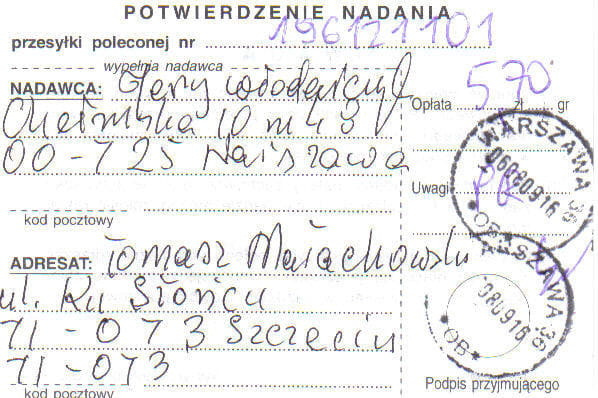 POTWIERDZENIE NADANIA
przesyłki poleconej nr 196121101
wypełnia nadawca
NADAWCA: Jerzy Włodarczyk
Chełmska 10 m 43
00-725 Warszawa
kod pocztowy
ADRESAT: Tomasz Małachowski
ul. Ku Słońcu
71-073 Szczecin
71-073
kod pocztowy
Opłata 5 70 zł gr
Uwagi PR
WARSZAWA 36
06080916
*OB*
WARSZAWA 36
080916
*OB*
Podpis przyjmującego